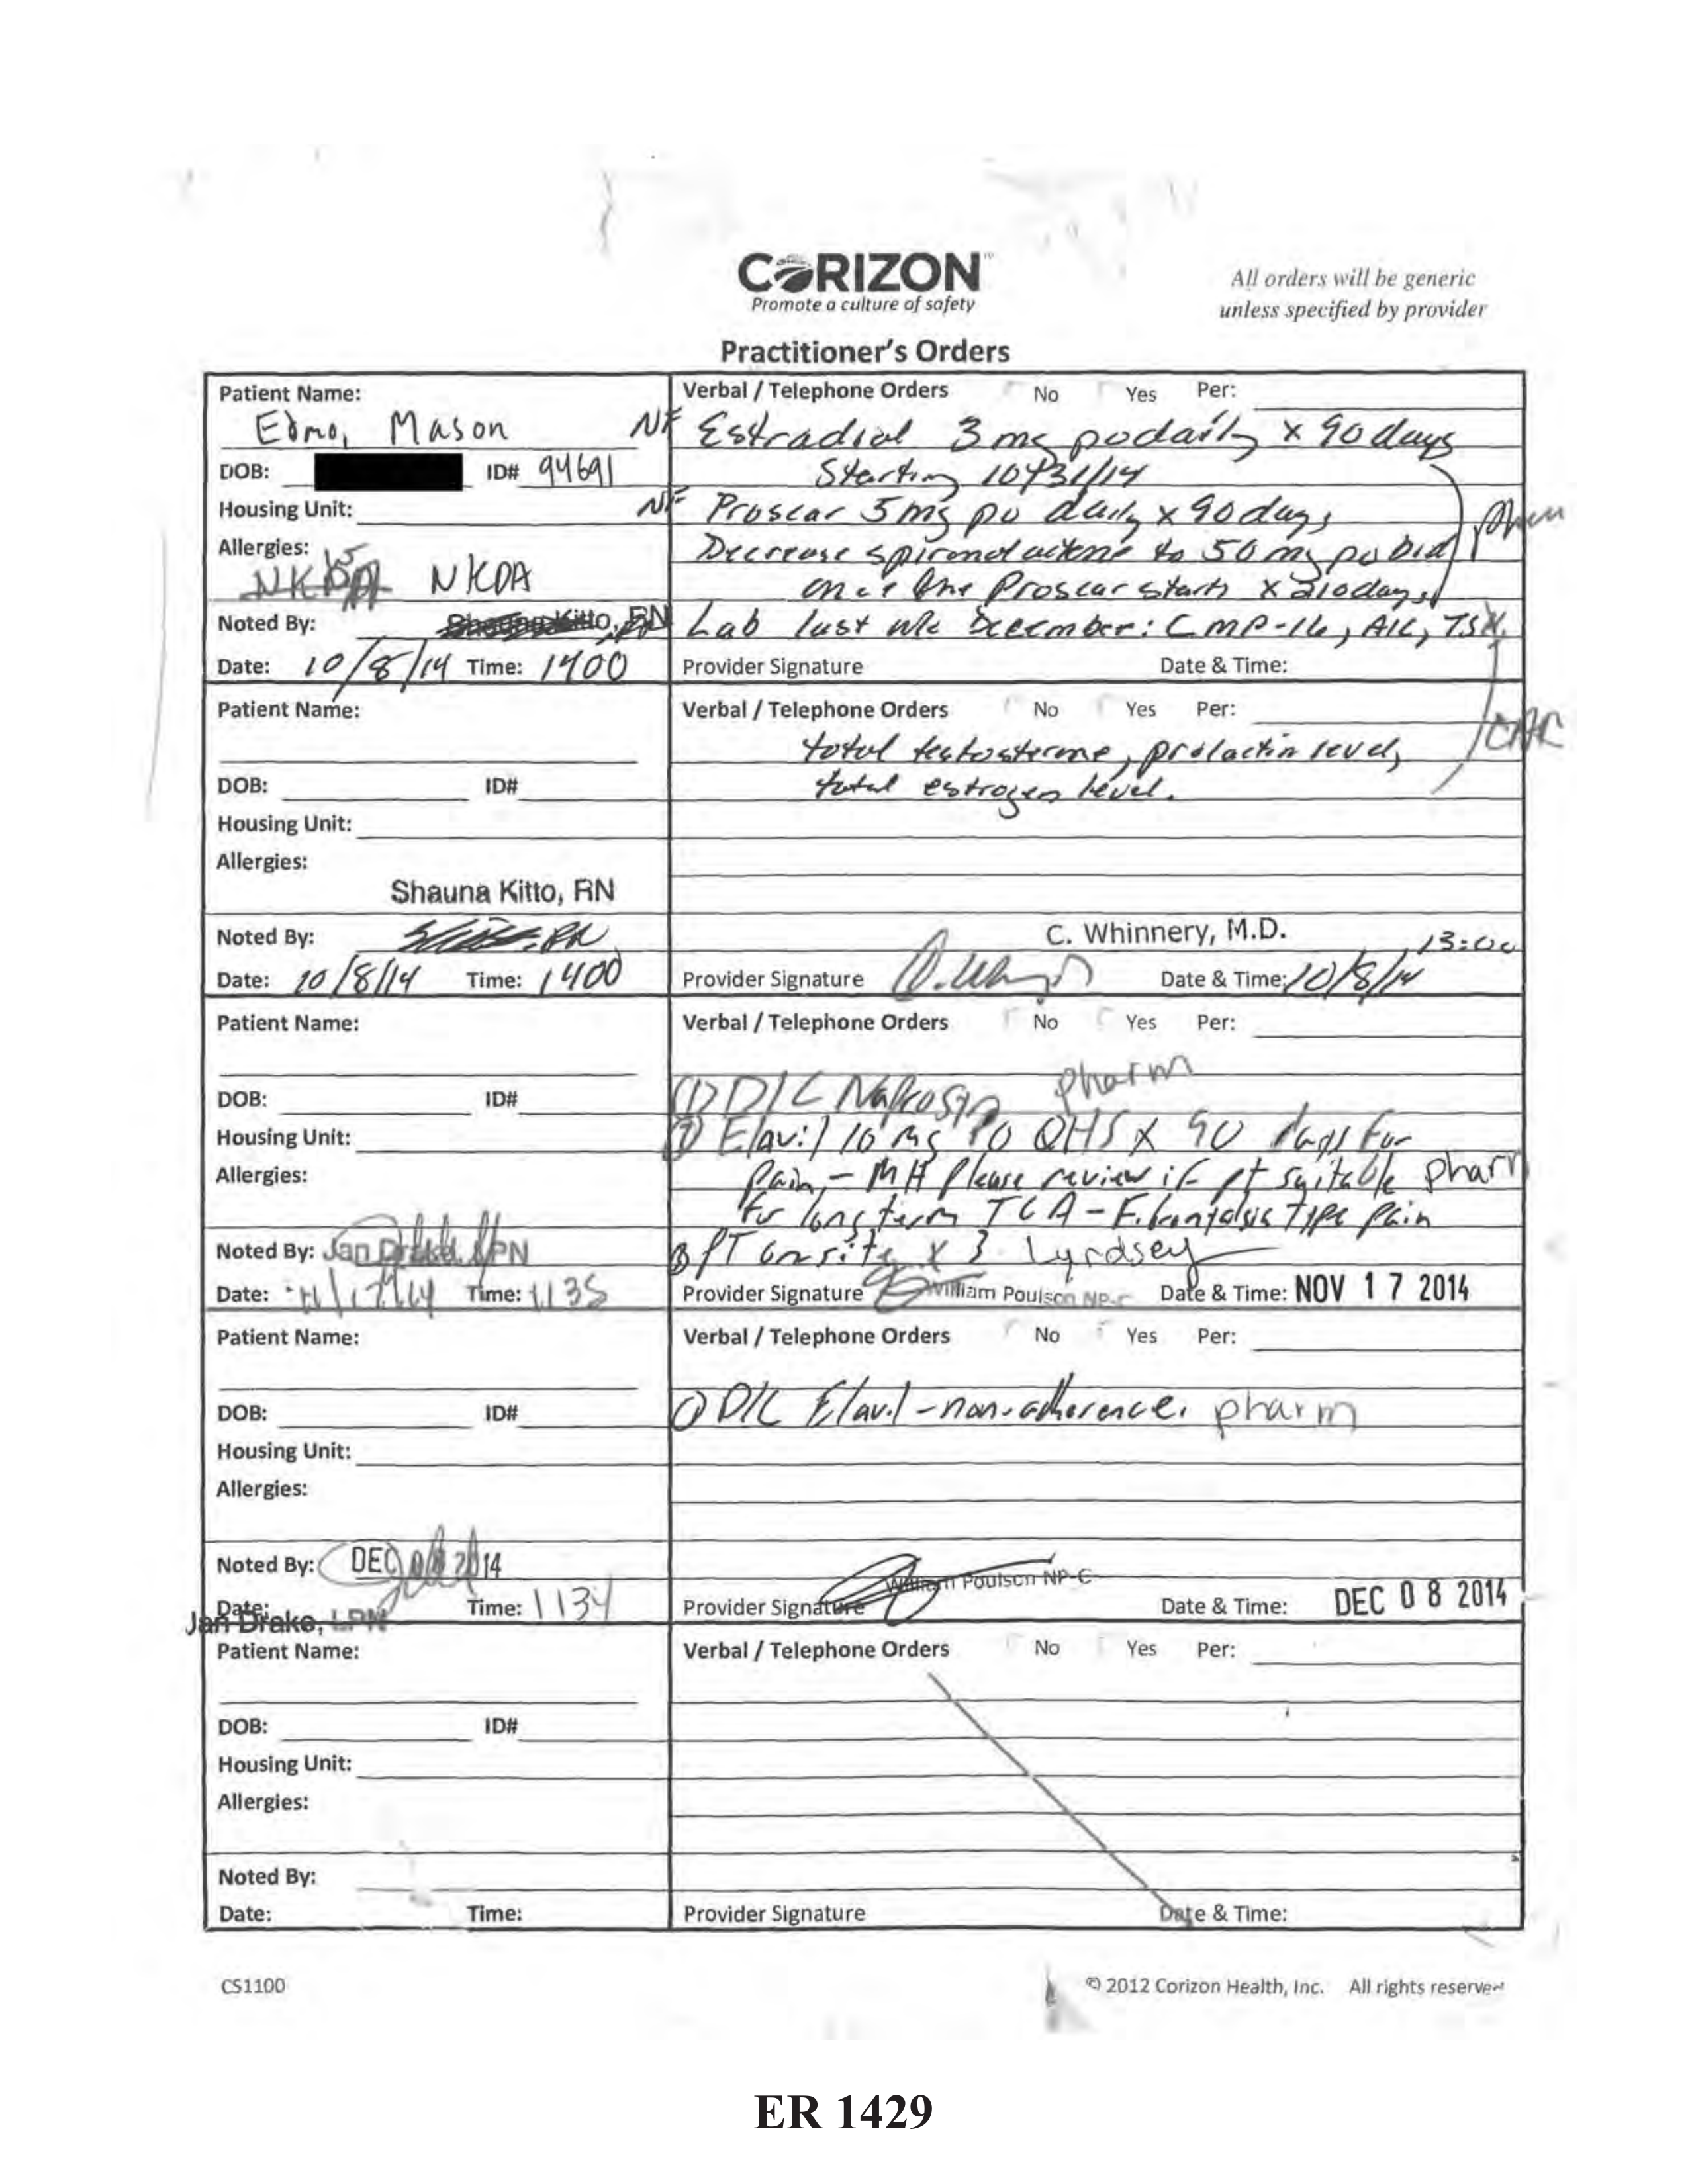 CORIZON™
Promote a culture of safety
All orders will be generic
unless specified by provider
Practitioner's Orders
Patient Name:
Edmo, Mason
DOB: ID# 94691
Housing Unit:
Allergies:
NKDA
Noted By: Shauna Kitto, RN
Date: 10/8/14 Time: 1400
Verbal / Telephone Orders No Yes Per:
NF Estradiol 3 mg po daily x 90 days
Starting 10/31/14
NF Proscar 5 mg po daily x 90 days
Decrease spironolactone to 50 mg po bid
once the Proscar starts x 210 days
Lab last wk December: CMP-16, A1C, TSH,
Provider Signature Date & Time:
Patient Name:
DOB: ID#
Housing Unit:
Allergies:
Shauna Kitto, RN
Noted By:
Date: 10/8/14 Time: 1400
Verbal / Telephone Orders No Yes Per:
total testosterone, prolactin level,
total estrogen level.
C. Whinnery, M.D. 13:00
Provider Signature Date & Time: 10/8/14
Patient Name:
DOB: ID#
Housing Unit:
Allergies:
Noted By: Jan Drake, LPN
Date: 11/17/14 Time: 1135
Verbal / Telephone Orders No Yes Per:
(1) D/C Naprosyn pharm
(2) Elavil 10 mg PO QHS x 90 days for
Pain - MH Please review if pt suitable pharm
for long term TCA - Fibromyalgia type pain
(3) PT onsite x 3 Lyndsey
Provider Signature William Poulson NP-C Date & Time: NOV 17 2014
Patient Name:
DOB: ID#
Housing Unit:
Allergies:
Noted By: DEC 08 2014
Date: Time: 1134
Jan Drake, LPN
Verbal / Telephone Orders No Yes Per:
(1) D/C Elavil - non-adherence. pharm
William Poulson NP-C
Provider Signature Date & Time: DEC 08 2014
Patient Name:
DOB: ID#
Housing Unit:
Allergies:
Noted By:
Date: Time:
Verbal / Telephone Orders No Yes Per:
Provider Signature Date & Time:
CS1100
© 2012 Corizon Health, Inc. All rights reserved
ER 1429